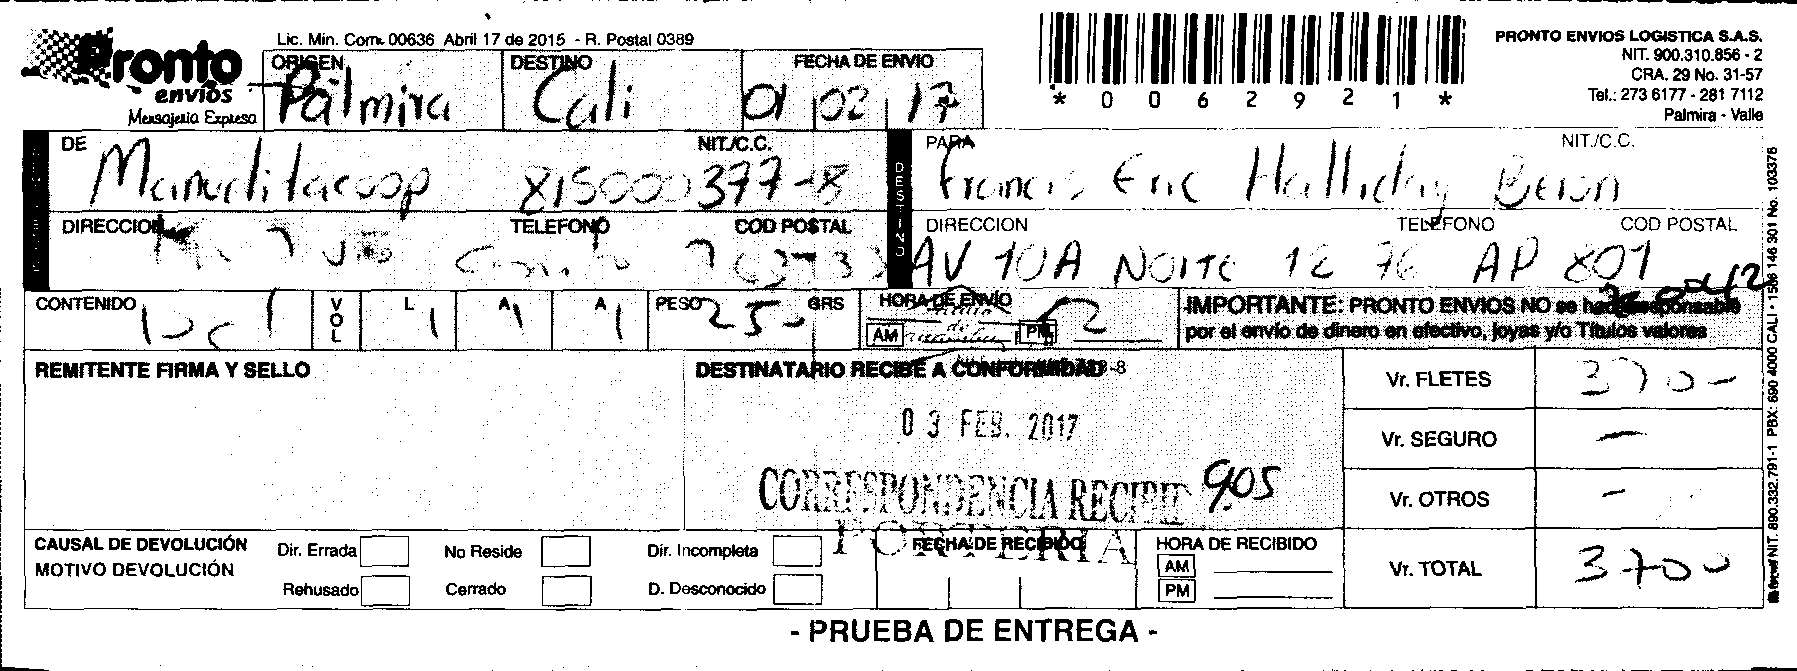 Pronto
envios
Mensajería Expresa
Lic. Min. Com. 00636 Abril 17 de 2015 - R. Postal 0389
ORIGEN Palmira
DESTINO Cali
FECHA DE ENVIO 01 02 17
* 0 0 6 2 9 2 1 *
PRONTO ENVIOS LOGISTICA S.A.S.
NIT. 900.310.856 - 2
CRA. 29 No. 31-57
Tel.: 273 6177 - 281 7112
Palmira - Valle
DE Manuelitacoop
NIT./C.C. 815000377-8
DIRECCION
TELEFONO
COD POSTAL
DESTINO
PARA Francis Eric Halliday Beron
NIT./C.C.
DIRECCION AV 10A NORTE 12 76 AP 801
TELEFONO
COD POSTAL
CONTENIDO
VOL
L 1
A 1
A 1
PESO 25 - GRS
HORA DE ENVIO
AM PM
IMPORTANTE: PRONTO ENVIOS NO se hace responsable
por el envío de dinero en efectivo, joyas y/o Títulos valores
REMITENTE FIRMA Y SELLO
DESTINATARIO RECIBE A CONFORMIDAD
03 FEB. 2017
CORRESPONDENCIA RECIBID
905
PORTERIA
Vr. FLETES 3700-
Vr. SEGURO -
Vr. OTROS -
Vr. TOTAL 3700
CAUSAL DE DEVOLUCIÓN
MOTIVO DEVOLUCIÓN
Dir. Errada
No Reside
Dir. Incompleta
Rehusado
Cerrado
D. Desconocido
FECHA DE RECIBIDO
HORA DE RECIBIDO
AM
PM
- PRUEBA DE ENTREGA -
NIT. 890.332.791-1 PBX: 690 4000 CALI - 1506 146 301 No. 103376